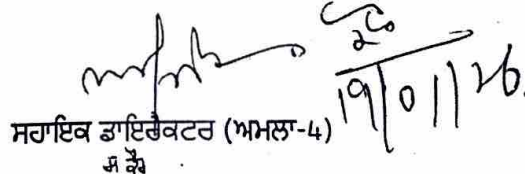 19/01/26
ਸਹਾਇਕ ਡਾਇਰੈਕਟਰ (ਅਮਲਾ-4)